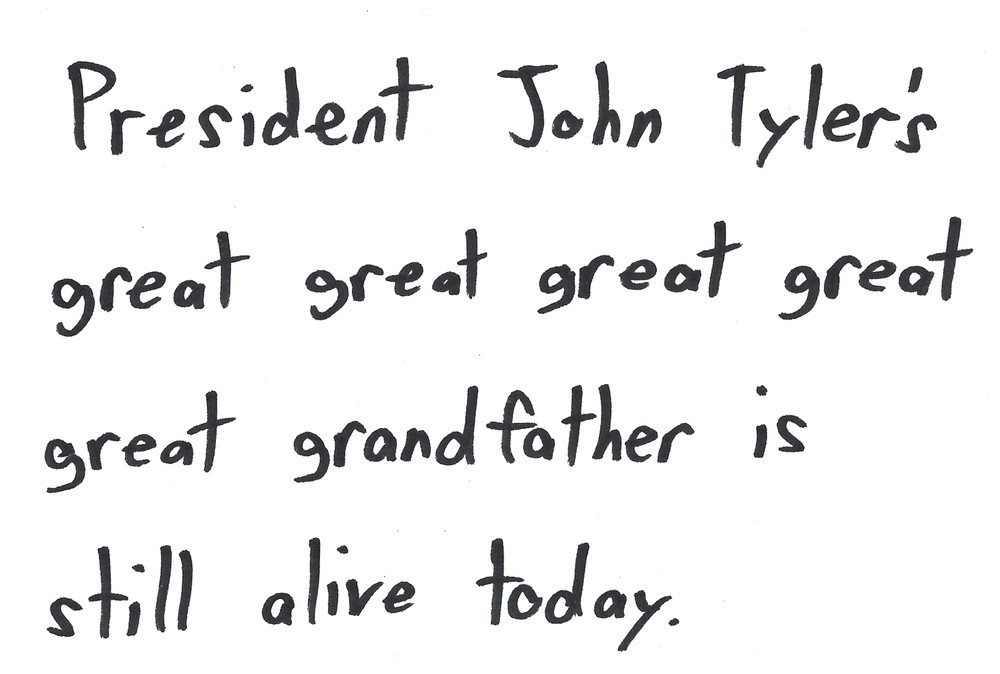 President John Tyler's
great great great great
great grandfather is
still alive today.